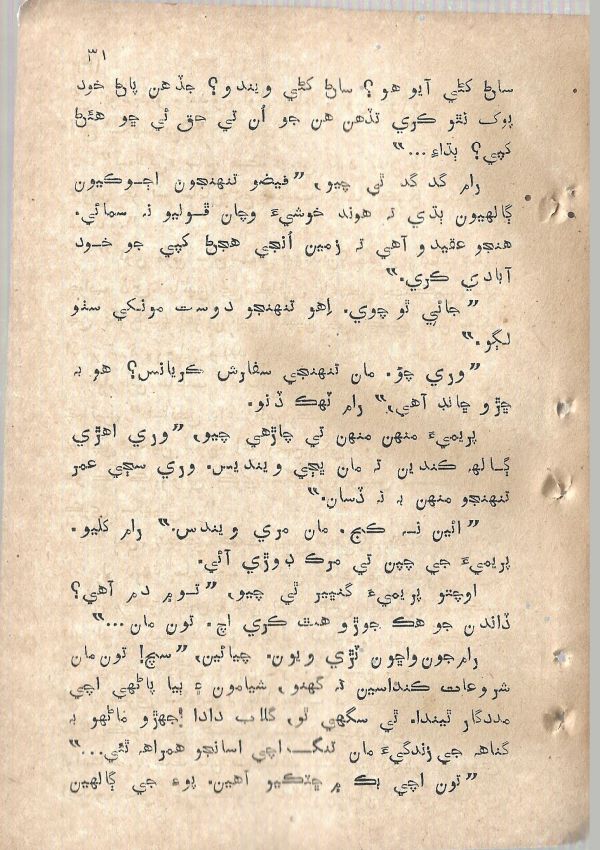 ٣١
ساڻ کڻي آيو هو؟ ساڻ کڻي ويندو؟ جڏهن پاڻ خود
پوک نٿو ڪري تڏهن هن جو اُن تي حق ئي ڇو هئڻ
کپي؟ ٻڌاءِ...“
رام گد گد ٿي چيو، ”فيضو تنهنجون اڄوڪيون
ڳالهيون ٻڌي ته هوند خوشيءَ وچان ڦوليو نه سمائي.
هنجو عقيدو آهي ته زمين اُنجي هجڻ کپي جو خود
آبادي ڪري.“
”جائي ٿو چوي. اِهو تنهنجو دوست مونکي سٺو
لڳو.“
”وري چؤ. مان تنهنجي سفارش ڪريانس؟ هو به
ڇڙو ڇانڊ آهي،“ رام ٽهڪ ڏنو.
پريميءَ منهن منهن تي چاڙهي چيو، ”وري اهڙي
ڳالهه ڪندين ته مان ڀڄي وينديس. وري سڄي عمر
تنهنجو منهن به نه ڏسان.“
”ائين نه ڪج. مان مري ويندس.“ رام کليو.
پريميءَ جي چپن تي مرڪ ڊوڙي آئي.
اوچتو پريميءَ گنڀير ٿي چيو، ”تو ۾ دم آهي؟
ڏاندن جو هڪ جوڙو هٿ ڪري اچ. تون مان...“
رام جون واڇون ٽڙي ويون. چيائين، ”سچ! تون مان
شروعات ڪنداسين ته گهنو، شيامون ۽ ٻيا پاڻهي اچي
مددگار ٿيندا. ٿي سگهي ٿو، گلاب دادا جهڙو ماڻهو به
گناهه جي زندگيءَ مان تنگ اچي اسانجو همراهه ٿئي...“
”تون اچي بڪ ۾ ڇٽڪيو آهين. پوءِ جي ڳالهين